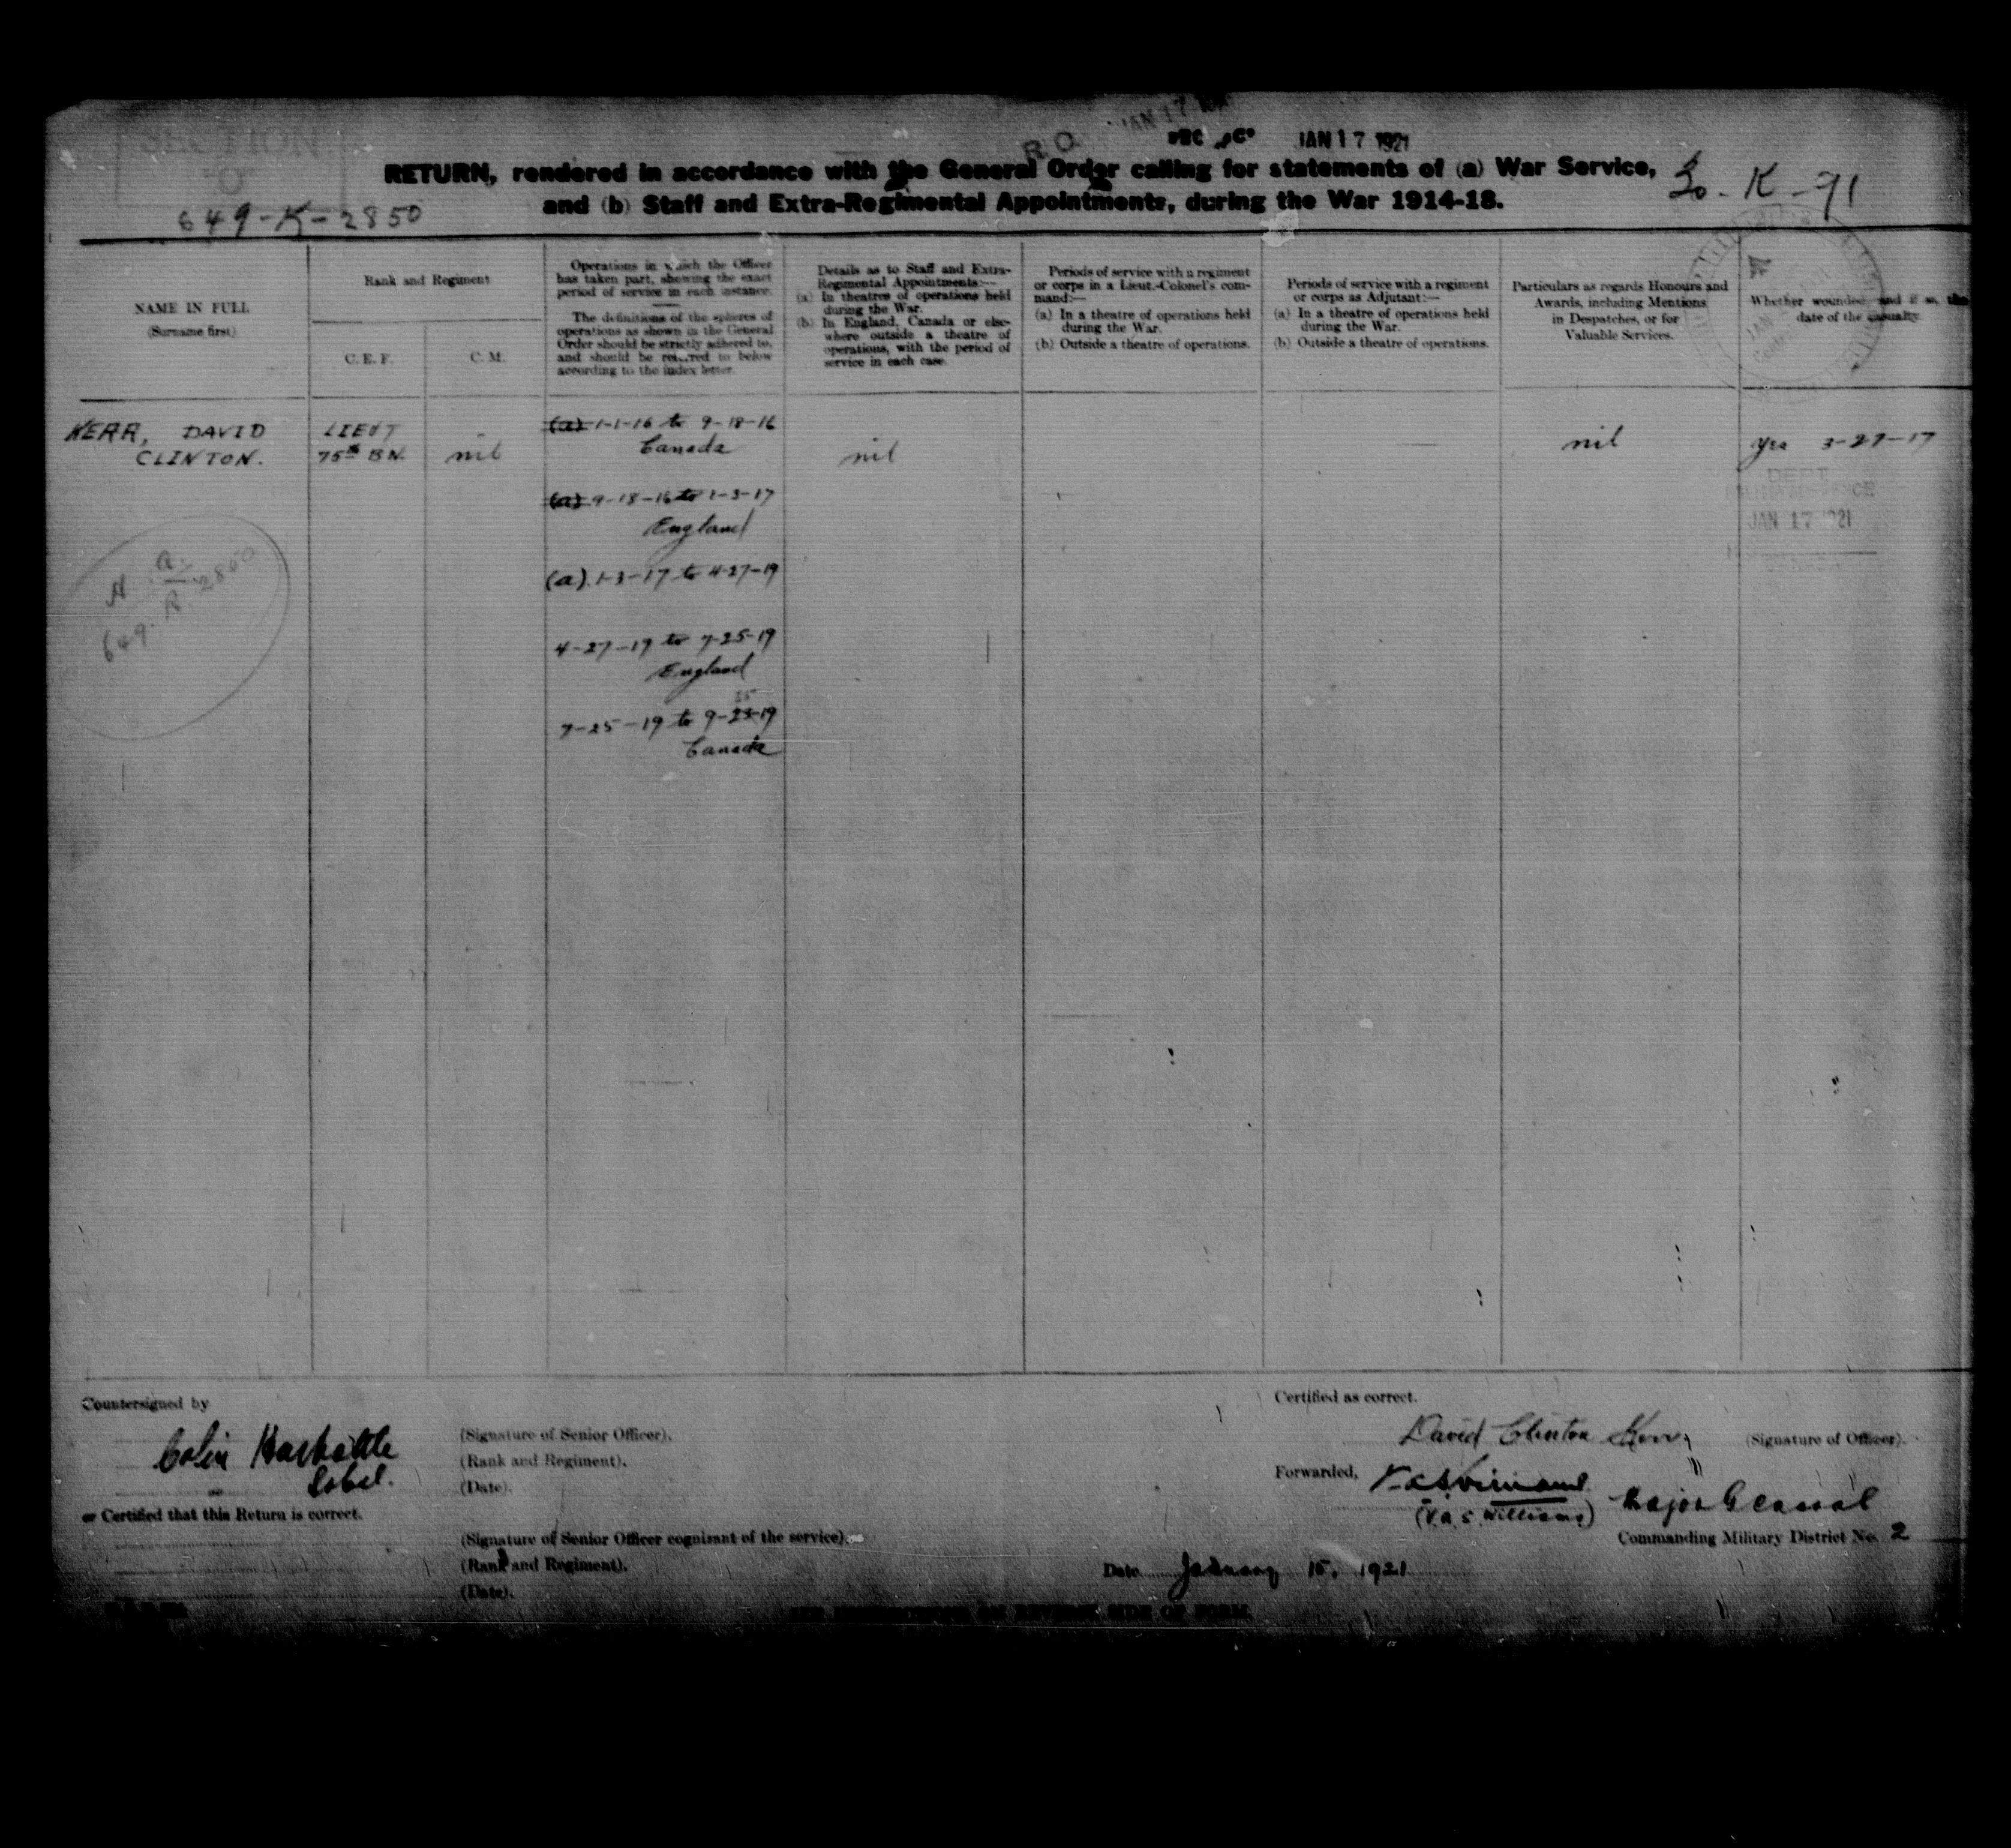 SECTION
"O"
649-K-2850
R.O.
JAN 17
REC
JAN 17 1921
RETURN, rendered in accordance with the General Order calling for statements of (a) War Service,
and (b) Staff and Extra-Regimental Appointments, during the War 1914-18.
K-91
NAME IN FULL
(Surname first)
Rank and Regiment
C. E. F.
C. M.
Operations in which the Officer
has taken part, showing the exact
period of service in each instance.
The definitions of the spheres of
operations as shown in the General
Order should be strictly adhered to,
and should be referred to below
according to the index letter.
Details as to Staff and Extra-
Regimental Appointments:—
(a) In theatres of operations held
during the War.
(b) In England, Canada or else-
where outside a theatre of
operations, with the period of
service in each case.
Periods of service with a regiment
or corps in a Lieut.-Colonel's com-
mand:—
(a) In a theatre of operations held
during the War.
(b) Outside a theatre of operations.
Periods of service with a regiment
or corps as Adjutant:—
(a) In a theatre of operations held
during the War.
(b) Outside a theatre of operations.
Particulars as regards Honours and
Awards, including Mentions
in Despatches, or for
Valuable Services.
Whether wounded, and if so, the
date of the casualty.
KERR, DAVID
CLINTON.
LIEUT
75th BN.
nil
(a) 1-1-16 to 9-18-16
Canada
(a) 9-18-16 to 1-3-17
England
(a) 1-3-17 to 4-27-19
4-27-19 to 7-25-19
England
25
7-25-19 to 9-23-19
Canada
nil
nil
Yes 3-27-17
DEPT
JAN 17 1921
649. 2850
Countersigned by
Colin Harbottle
Lobel.
(Signature of Senior Officer).
(Rank and Regiment).
(Date).
or Certified that this Return is correct.
(Signature of Senior Officer cognizant of the service).
(Rank and Regiment).
(Date).
Certified as correct.
David Clinton Kerr,
(Signature of Officer).
Forwarded,
(V.A.S. Williams)
Major General
Commanding Military District No. 2
Date January 15, 1921
SEE INSTRUCTIONS ON REVERSE SIDE OF FORM.